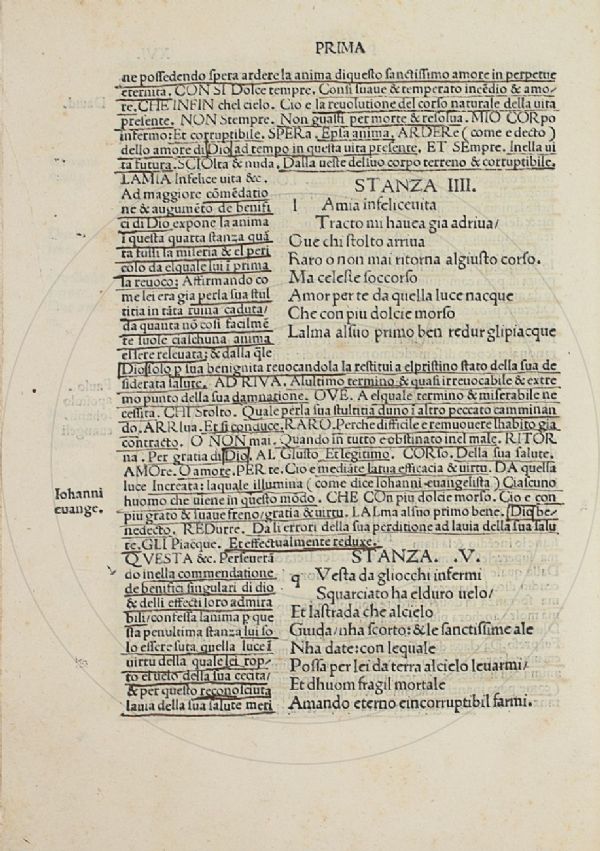 PRIMA
ne possedendo spera ardere la anima di questo sanctissimo amore in perpetue
eternita. CON SI Dolce tempre. Consi suaue & temperato incēdio & amo-
re. CHE INFIN chel cielo. Cio e la reuolutione del corso naturale della uita
presente. NON Stempre. Non guasti per morte & resolua. MIO CORpo
infermo: Et corruptibile. SPERa. Epsa anima. ARDERe (come e decto)
dello amore di Dio ad tempo in questa uita presente, ET SEmpre. Inella ui
ta futura. SCIOlta & nuda. Dalla ueste del suo corpo terreno & corruptibile.
LAMIA Infelice uita &c.
Ad maggiore cōmēdatio
ne & augumēto de benifi
ci di Dio expone la anima
i questa quarta stanza quā
ta fussi la miseria & el peri
colo da elquale lui i prima
la reuoco: Affirmando co
me lei era gia per la sua stul
titia in tāta ruina caduta/
da quanta nō cosi facilmē
te suole cialchuna anima
essere releuata: & dalla q̄le
STANZA IIII.
l Amia infelice uita
Tracto mi hauea gia adriua/
Oue chi stolto arriua
Raro o non mai ritorna al giusto corso.
Ma celeste soccorso
Amor per te da quella luce nacque
Che con piu dolcie morso
Lalma alsuo primo ben redur gli piacque
Dio solo p sua benignita reuocandola la restitui a el pristino stato della sua de
siderata salute. AD RIVA. Al ultimo termino & quasi irreuocabile & extre
mo punto della sua damnatione. OVE. A el quale termino & miserabile ne
cessita. CHI STolto. Quale per la sua stulitia duno i altro peccato camminan
do. ARRIua. Et si conduce. RARO. Perche difficile e remuouere lhabito gia
contracto. O NON mai. Quando in tutto e obstinato inel male. RITOR
na. Per gratia di Dio. AL GIusto. Et legitimo. CORSo. Della sua salute.
AMOre. O amore. PER te. Cio e mediāte la tua efficacia & uirtu. DA quella
luce Increata: la quale illumina (come dice Iohanni euangelista) Ciascuno
huomo che uiene in questo mōdo. CHE COn piu dolcie morso. Cio e con
piu grato & suaue freno/gratia & uirtu. LALma al suo primo bene. Dio be-
nedecto. REDurre. Da li errori della sua perditione ad la uia della sua salu
te. GLI Piacque. Et effectualmente reduxe.
Iohanni
euange.
QVESTA &c. Perseuerā
do inella commendatione
de benifici singulari di dio
& delli effecti loro admira
bili/confessa lanima p que
sta penultima stanza lui so
lo essere suta quella luce i
uirtu della quale lei rop-
to el uelo della sua cecita/
& per questo reconosciuta
la uia della sua salute meri
STANZA. .V.
q Vesta da gliocchi infermi
Squarciato ha elduro uelo/
Et lastrada che alcielo
Guida/nha scorto: & le sanctissime ale
Nha date: con lequale
Possa per lei da terra alcielo leuarmi/
Et dhuom fragil mortale
Amando eterno eincorruptibil farmi.